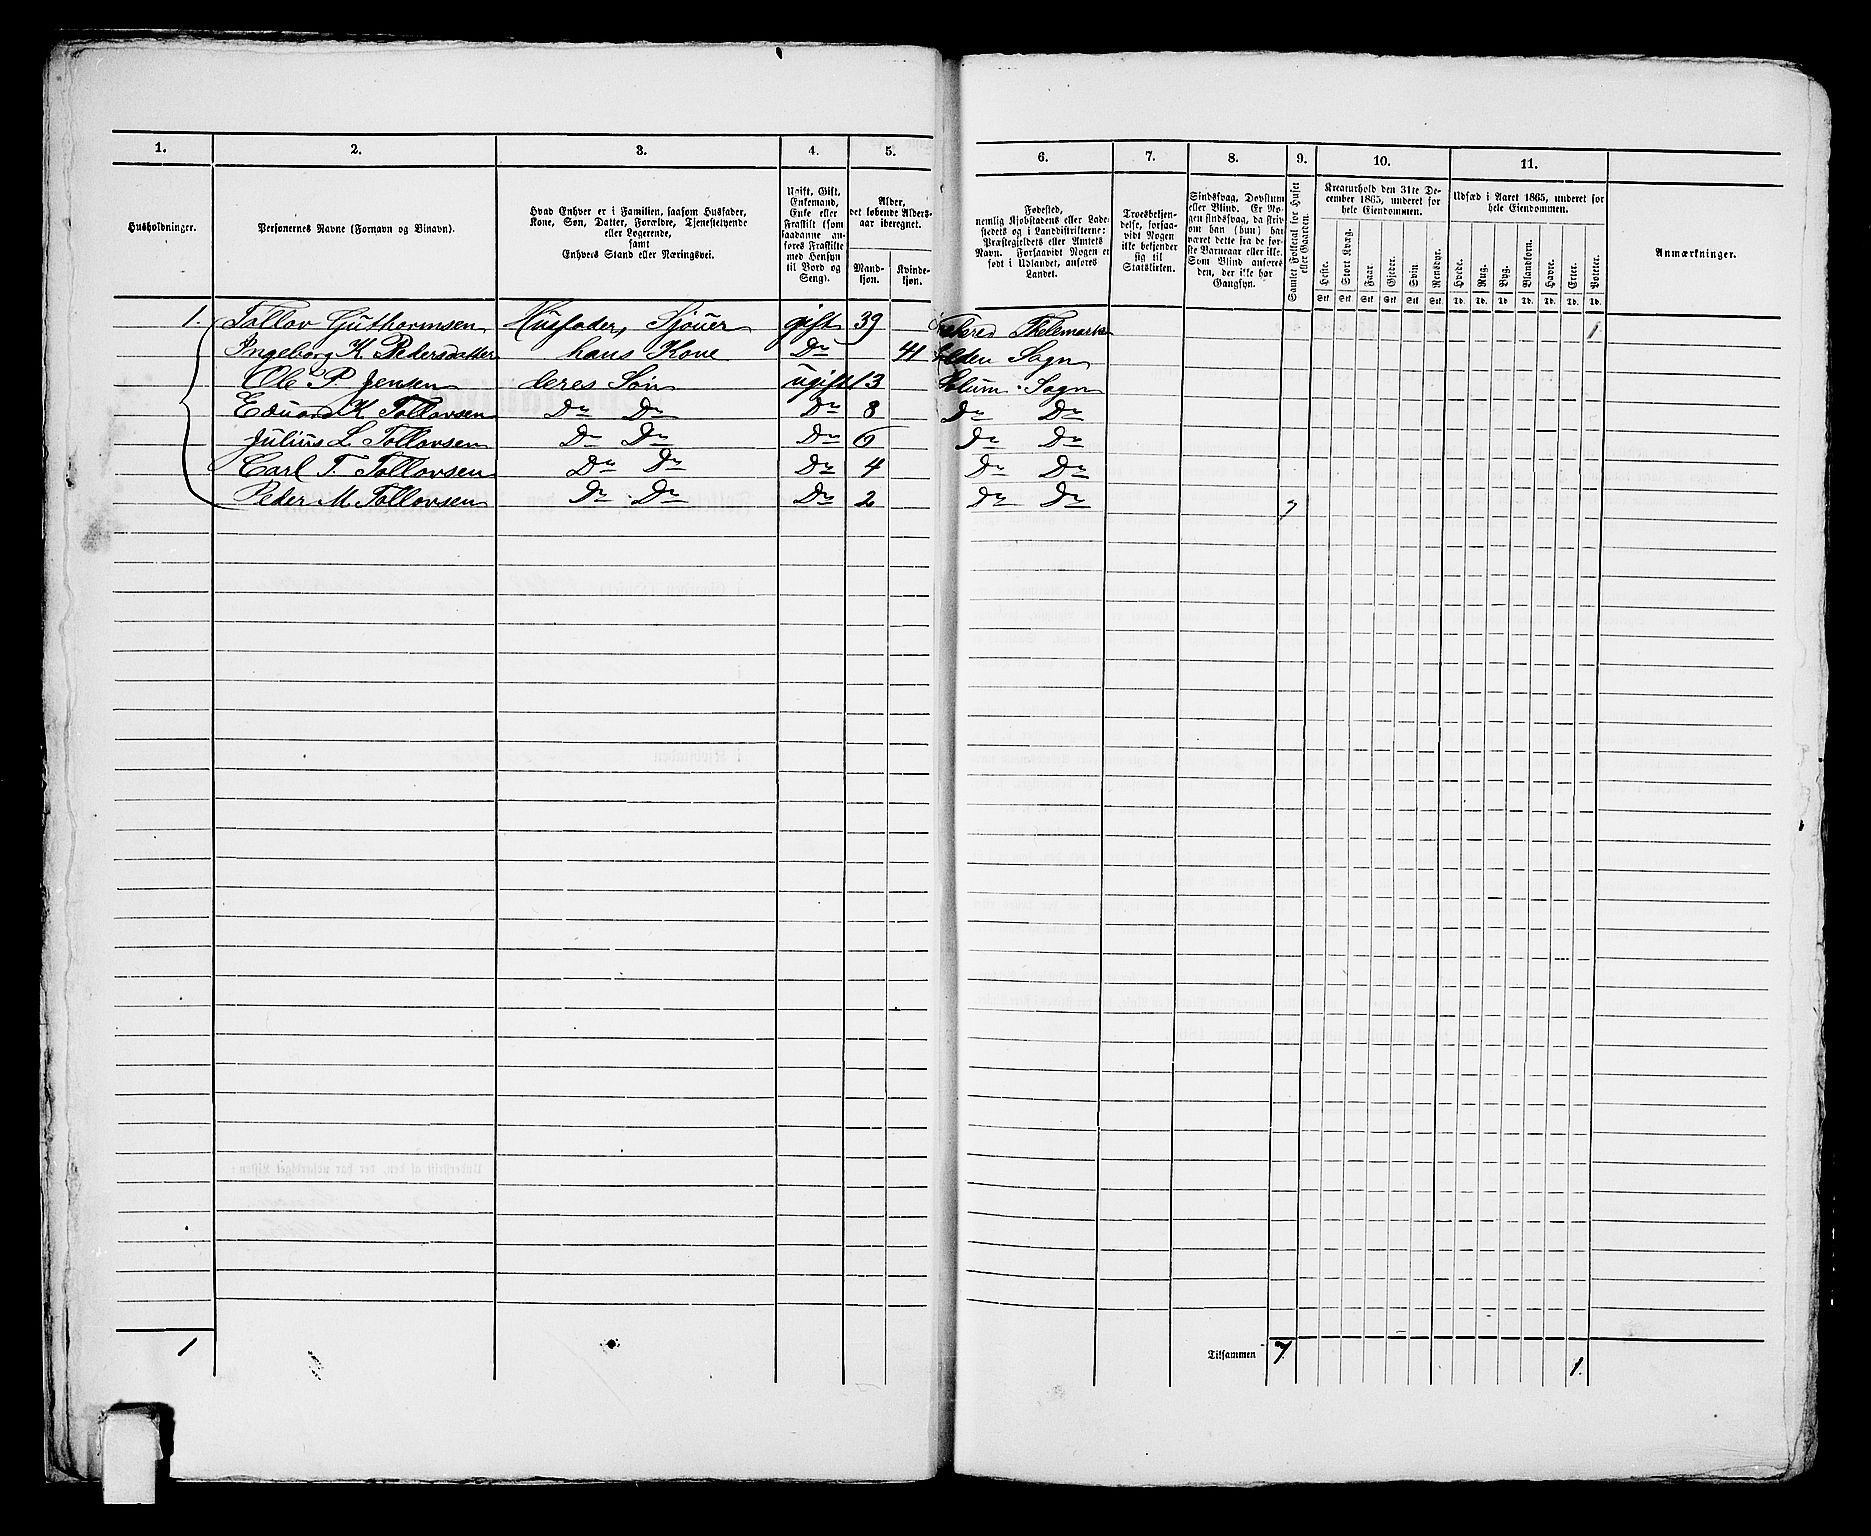 1. 2. 3. 4. 5. 6. 7. 8. 9. 10. 11.
Husholdninger.
Personernes Navne (Fornavn og Binavn).
Hvad Enhver er i Familien, saasom Husfader,
Kone, Søn, Datter, Forældre, Tjenestetyende
eller Logerende,
samt
Enhvers Stand eller Næringsvei.
Ugift, Gift,
Enkemand,
Enke eller
Fraskilt (som
saadanne an-
føres Fraskilte
med Hensyn
til Bord og
Seng).
Alder,
det løbende Alders-
aar iberegnet.
Mand-
kjøn.
Kvinde-
kjøn.
Fødested,
nemlig Kjøbstadens eller Lade-
stedets og i Landdistrikterne:
Præstegjeldets eller Amtets
Navn. Forsaavidt Nogen er
født i Udlandet, anføres
Landet.
Troesbekjen-
delse, forsaa-
vidt Nogen
ikke bekjender
sig til
Statskirken.
Sindssvag, Døvstum
eller Blind. Er No-
gen sindssvag, da skriv
om han (hun) har
været dette fra de før-
ste Barneaar eller ikke.
Som Blind anføres
den, der ikke har
Gangsyn.
Samlet Folketal for Huset
eller Gaarden.
Kreaturhold den 31te De-
cember 1865, underet for
hele Eiendommen.
Heste. Stort Kvæg. Faar. Gjeder. Svin. Rensdyr.
Stk. Stk. Stk. Stk. Stk. Stk.
Udsæd i Aaret 1865, underet for
hele Eiendommen.
Hvede. Rug. Byg. Blandkorn. Havre. Erter. Poteter.
Td. Td. Td. Td. Td. Td. Td.
Anmærkninger.
1. Tollov Guthormsen Husfader, Sjouer gift 39 Thelemarken 1
Ingeborg K. Pedersdatter hans Kone Do 41 Solden Sogn
Ole P. Jensen deres Søn ugift 13 Solum Sogn
Eduard K Tollovsen Do Do Do 8 Do Do
Julius L. Tollovsen Do Do Do 6 Do Do
Carl T. Tollovsen Do Do Do 4 Do Do
Peder M. Tollovsen Do Do Do 2 Do Do 7
1 Tilsammen 7 1.